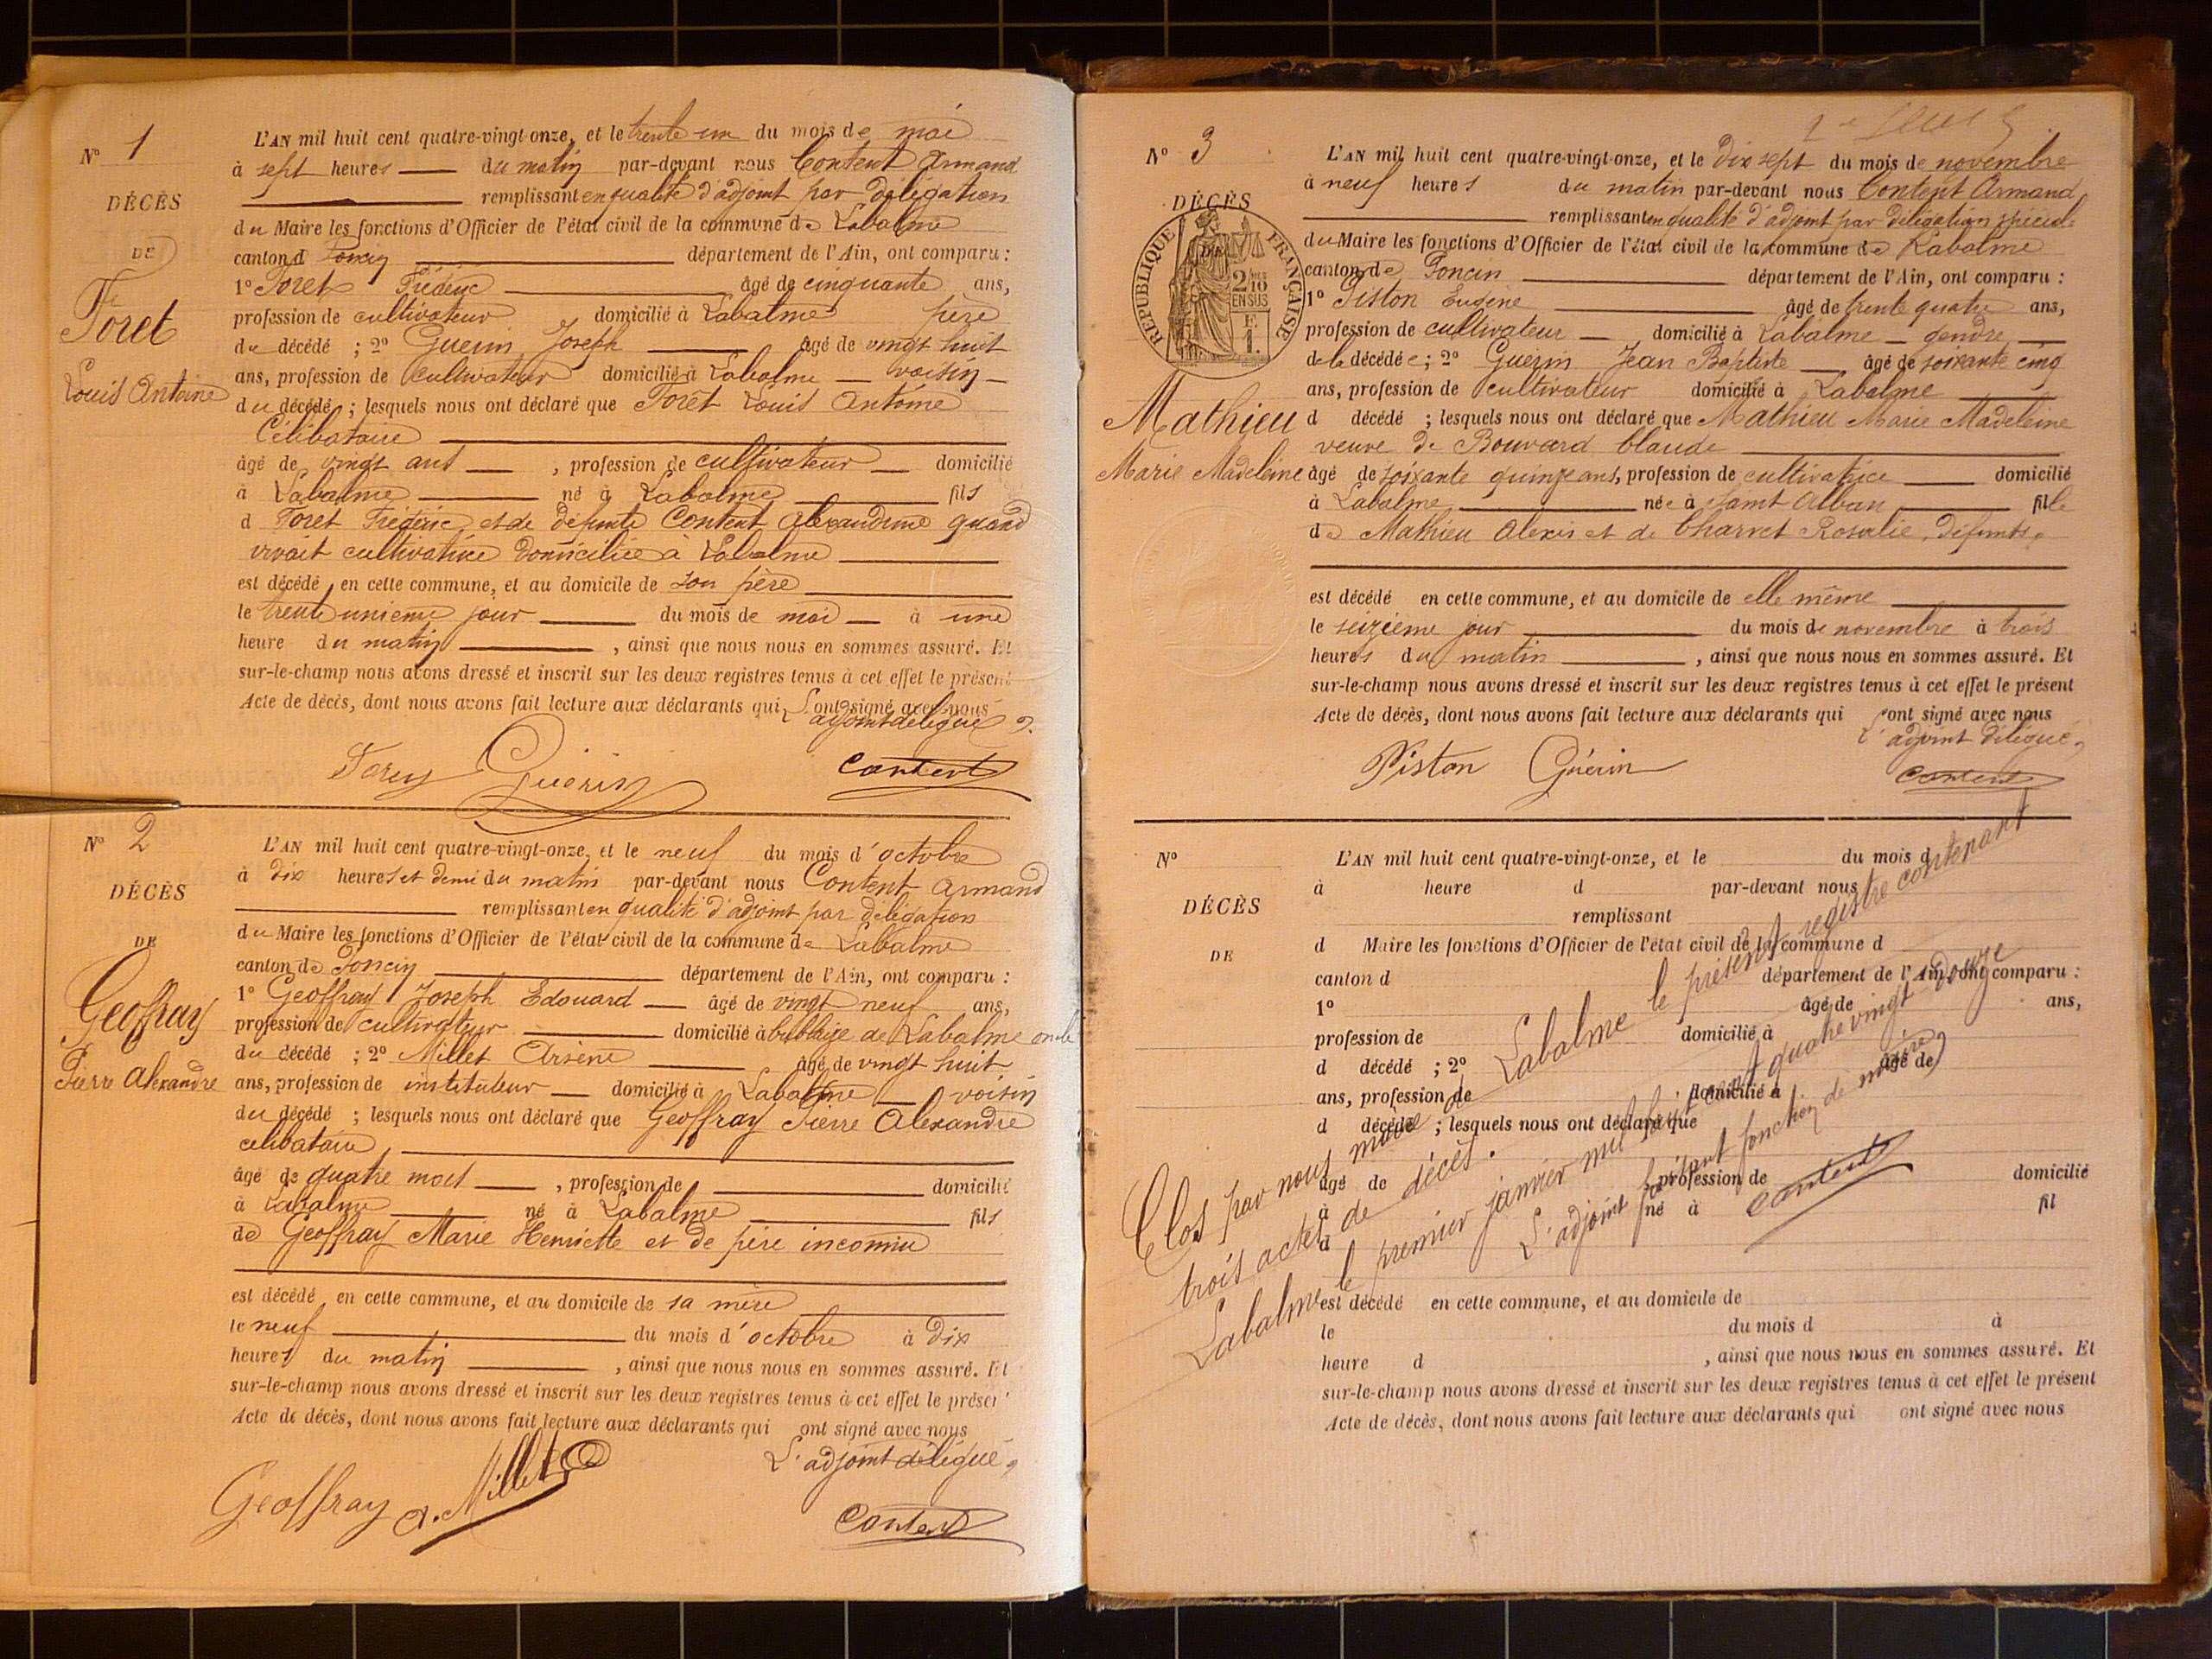 N° 1
DÉCÈS
DE
Foret
Louis Antoine
L'AN mil huit cent quatre-vingt-onze, et le trente un du mois de mai
à sept heures du matin par-devant nous Content Armand
remplissant en qualité d'adjoint par délégation
du Maire les fonctions d'Officier de l'état civil de la commune de Labalme
canton d Poncin département de l'Ain, ont comparu :
1° Foret Frédéric âgé de cinquante ans,
profession de cultivateur domicilié à Labalme père
du décédé ; 2° Guerin Joseph âgé de vingt huit
ans, profession de cultivateur domicilié à Labalme voisin
du décédé ; lesquels nous ont déclaré que Foret Louis Antoine
Célibataire
âgé de vingt ans , profession de cultivateur domicilié
à Labalme né à Labalme fils
d Foret Frédéric et de défunte Content Alexandrine quand
vivait cultivatrice domiciliée à Labalme
est décédé en cette commune, et au domicile de son père
le trente unieme jour du mois de mai à une
heure du matin , ainsi que nous nous en sommes assuré. Et
sur-le-champ nous avons dressé et inscrit sur les deux registres tenus à cet effet le présent
Acte de décès, dont nous avons fait lecture aux déclarants qui ont signé avec nous
L'adjoint délégué
Guérin Content
N° 2
DÉCÈS
DE
Geoffray
Pierre Alexandre
L'AN mil huit cent quatre-vingt-onze, et le neuf du mois d'octobre
à dix heures et demi du matin par-devant nous Content Armand
remplissant en qualité d'adjoint par délégation
du Maire les fonctions d'Officier de l'état civil de la commune de Labalme
canton de Poncin département de l'Ain, ont comparu :
1° Geoffray Joseph Edouard âgé de vingt neuf ans,
profession de cultivateur domicilié à de Labalme oncle
du décédé ; 2° Millet Arsène âgé de vingt huit
ans, profession de instituteur domicilié à Labalme voisin
du décédé ; lesquels nous ont déclaré que Geoffray Pierre Alexandre
celibataire
âgé de quatre mois , profession de domicilié
à Labalme né à Labalme fils
de Geoffray Marie Henriette et de père inconnu
est décédé en cette commune, et au domicile de sa mère
le neuf du mois d'octobre à dix
heures du matin , ainsi que nous nous en sommes assuré. Et
sur-le-champ nous avons dressé et inscrit sur les deux registres tenus à cet effet le présen
Acte de décès, dont nous avons fait lecture aux déclarants qui ont signé avec nous
L'adjoint délégué
Geoffray A. Millet
Content
N° 3
DÉCÈS
RÉPUBLIQUE FRANÇAISE
2/10 EN SUS
F. 1.
Mathieu
Marie Madeleine
L'AN mil huit cent quatre-vingt-onze, et le dix sept du mois de novembre
à neuf heures du matin par-devant nous Content Armand
remplissant en qualité d'adjoint par délégation spéciale
du Maire les fonctions d'Officier de l'état civil de la commune de Labalme
canton de Poncin département de l'Ain, ont comparu :
1° Piston Eugène âgé de trente quatre ans,
profession de cultivateur domicilié à Labalme gendre
de la décédée ; 2° Guerin Jean Baptiste âgé de soixante cinq
ans, profession de cultivateur domicilié à Labalme
d décédé ; lesquels nous ont déclaré que Mathieu Marie Madeleine
veuve de Bouvard Claude
âgé de soixante quinze ans, profession de cultivatrice domicilié
à Labalme née à Saint Alban fille
de Mathieu Alexis et de Charvet Rosalie, défunts
est décédé en cette commune, et au domicile de elle même
le seizième jour du mois de novembre à trois
heures du matin , ainsi que nous nous en sommes assuré. Et
sur-le-champ nous avons dressé et inscrit sur les deux registres tenus à cet effet le présent
Acte de décès, dont nous avons fait lecture aux déclarants qui ont signé avec nous
L'adjoint délégué
Piston Guérin Content
N°
DÉCÈS
DE
L'AN mil huit cent quatre-vingt-onze, et le du mois d
à heure d par-devant nous
remplissant
d Maire les fonctions d'Officier de l'état civil de la commune d
canton d département de l'Ain, ont comparu :
1° âgé de ans,
profession de domicilié à
d décédé ; 2° âgé de
ans, profession de domicilié à
d décédé ; lesquels nous ont déclaré que
âgé de profession de domicilié
à né à fil
d
est décédé en cette commune, et au domicile de
le du mois d à
heure d , ainsi que nous nous en sommes assuré. Et
sur-le-champ nous avons dressé et inscrit sur les deux registres tenus à cet effet le présent
Acte de décès, dont nous avons fait lecture aux déclarants qui ont signé avec nous
Clos par nous maire d Labalme le présent registre contenant
trois actes de décès.
Labalme le premier janvier mil huit cent quatre vingt douze
L'adjoint faisant fonction de maire
Content